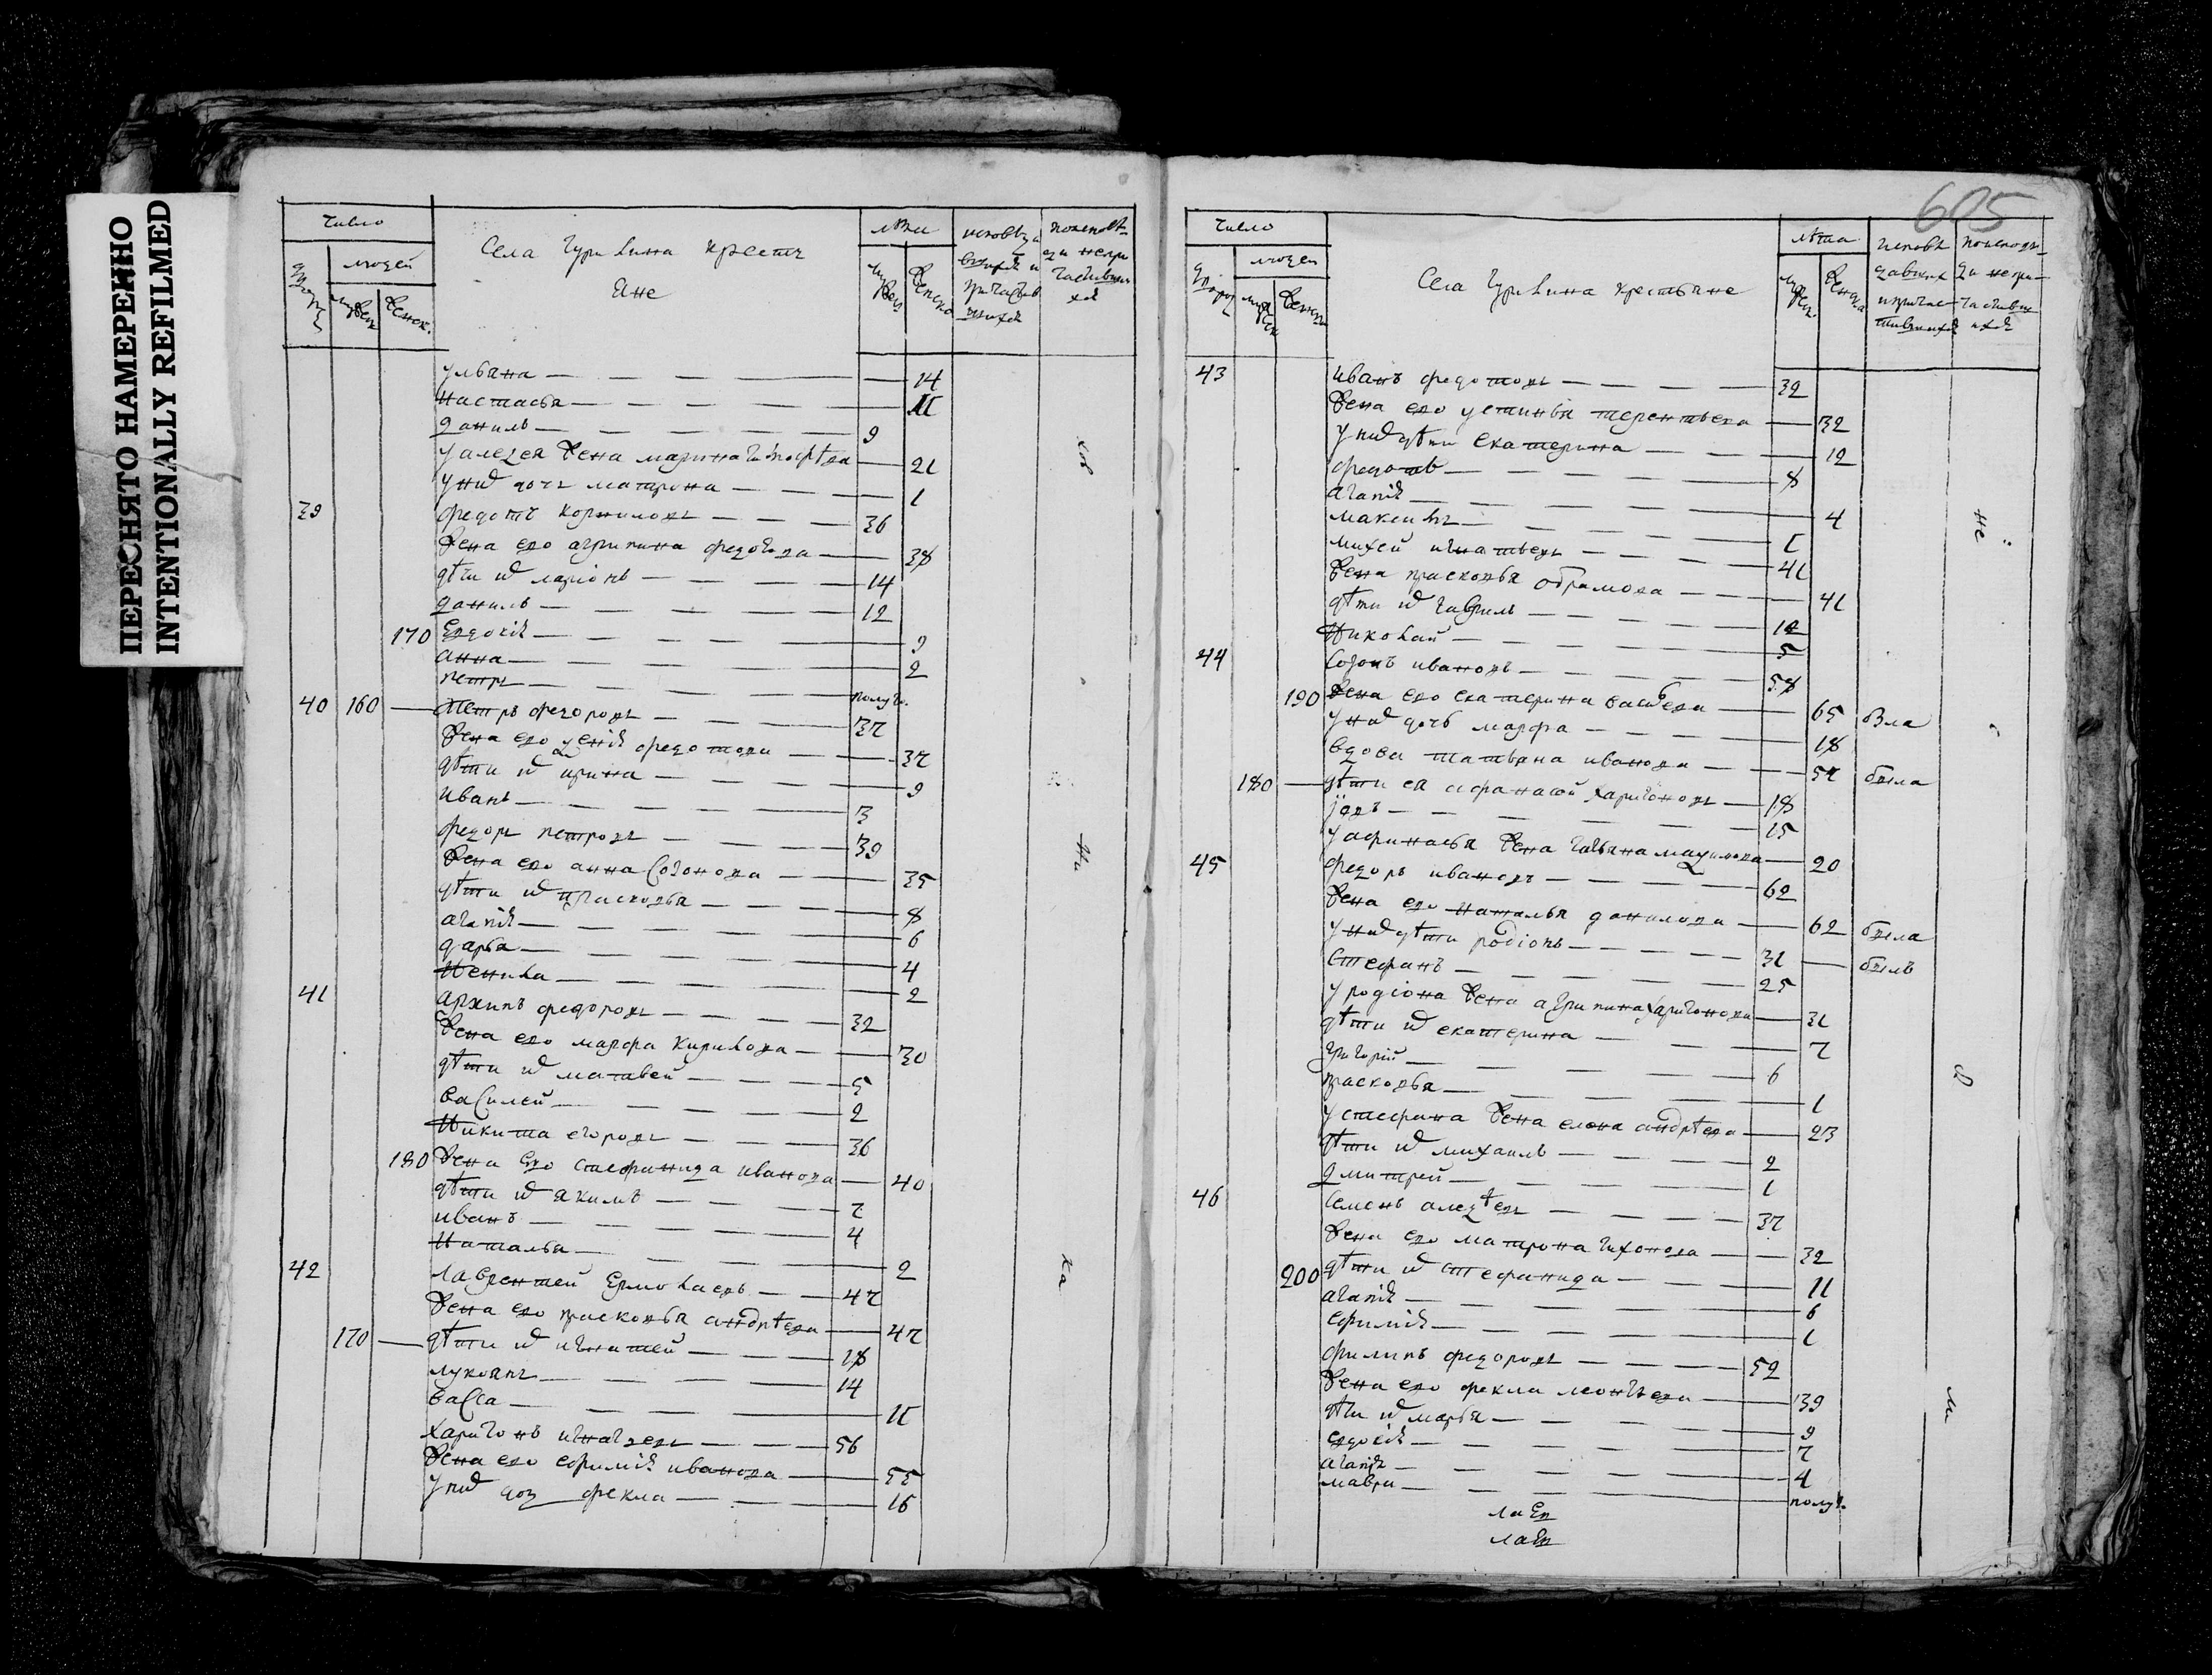 ПЕРЕСНЯТО НАМЕРЕННО
INTENTIONALLY REFILMED
число
людей
Села Гурилина кресть
яне
лѣта
ульяна — 14
настасья — 11
данилъ — 9
жена марина — 21
дочь матрона — 1
39 федотъ корниловъ — 36
жена его агрипина федотова — 38
дѣти их ларіонъ — 14
данилъ — 12
170 Евдокія — 9
анна — 2
петръ — полуг.
40 160 — Петръ федоровъ — 37
жена его федотова — 37
дѣти их ирина — 9
иванъ — 3
федоръ петровъ — 39
жена его анна Созонова — 35
дѣти их прасковья — 8
агапія — 6
дарья — 4
Ненила — 2
41 архипъ федоровъ — 32
жена его марфа кирилова — 30
дѣти их матвей — 5
василей — 2
Никита егоровъ — 36
180 жена его стефанида иванова — 40
дѣти их якимъ — 7
иванъ — 4
Наталья — 2
42 лаврентей Ермолаевъ — 47
жена его прасковья андрѣева — 47
170 — дѣти их игнатей — 18
лукоянъ — 14
васса — 11
харитонъ игнатьевъ — 56
жена его ефимія иванова — 55
у них дочь фекла — 16
605
число
людей
Села Гурилина крестьяне
лѣта
43 иванъ федотовъ — 32
жена его устинья терентьева — 32
у них дѣти екатерина — 12
федотъ — 8
агапія — 4
максимъ — 1
михей игнатьевъ — 41
жена прасковья абрамова — 41
дѣти их гаврилъ — 12
Николай — 5
44 Созонъ ивановъ — 58
190 жена его екатерина — 65 была
у них дочь марфа — 18
вдова татьяна иванова — 57 была
180 — дѣти ея афанасей харитоновъ — 18
іовъ — 15
у афанасья жена татьяна — 20
45 федоръ ивановъ — 62
жена его наталья данилова — 62 была
у них дѣти родіонъ — 31 — былъ
Стефанъ — 25
у родіона жена агрипина харитонова — 31
дѣти их екатерина — 7
григорій — 6
прасковья — 1
у стефана жена елена андрѣева — 23
дѣти их михаилъ — 2
дмитрей — 1
46 семенъ — 37
жена его матрона тихонова — 32
200 дѣти их стефанида — 11
агапія — 6
ефимія — 1
филипъ федоровъ — 52
жена его фекла леонтьева — 39
дѣти их марья — 9
евдокія — 7
агапія — 4
мавра — полуг.